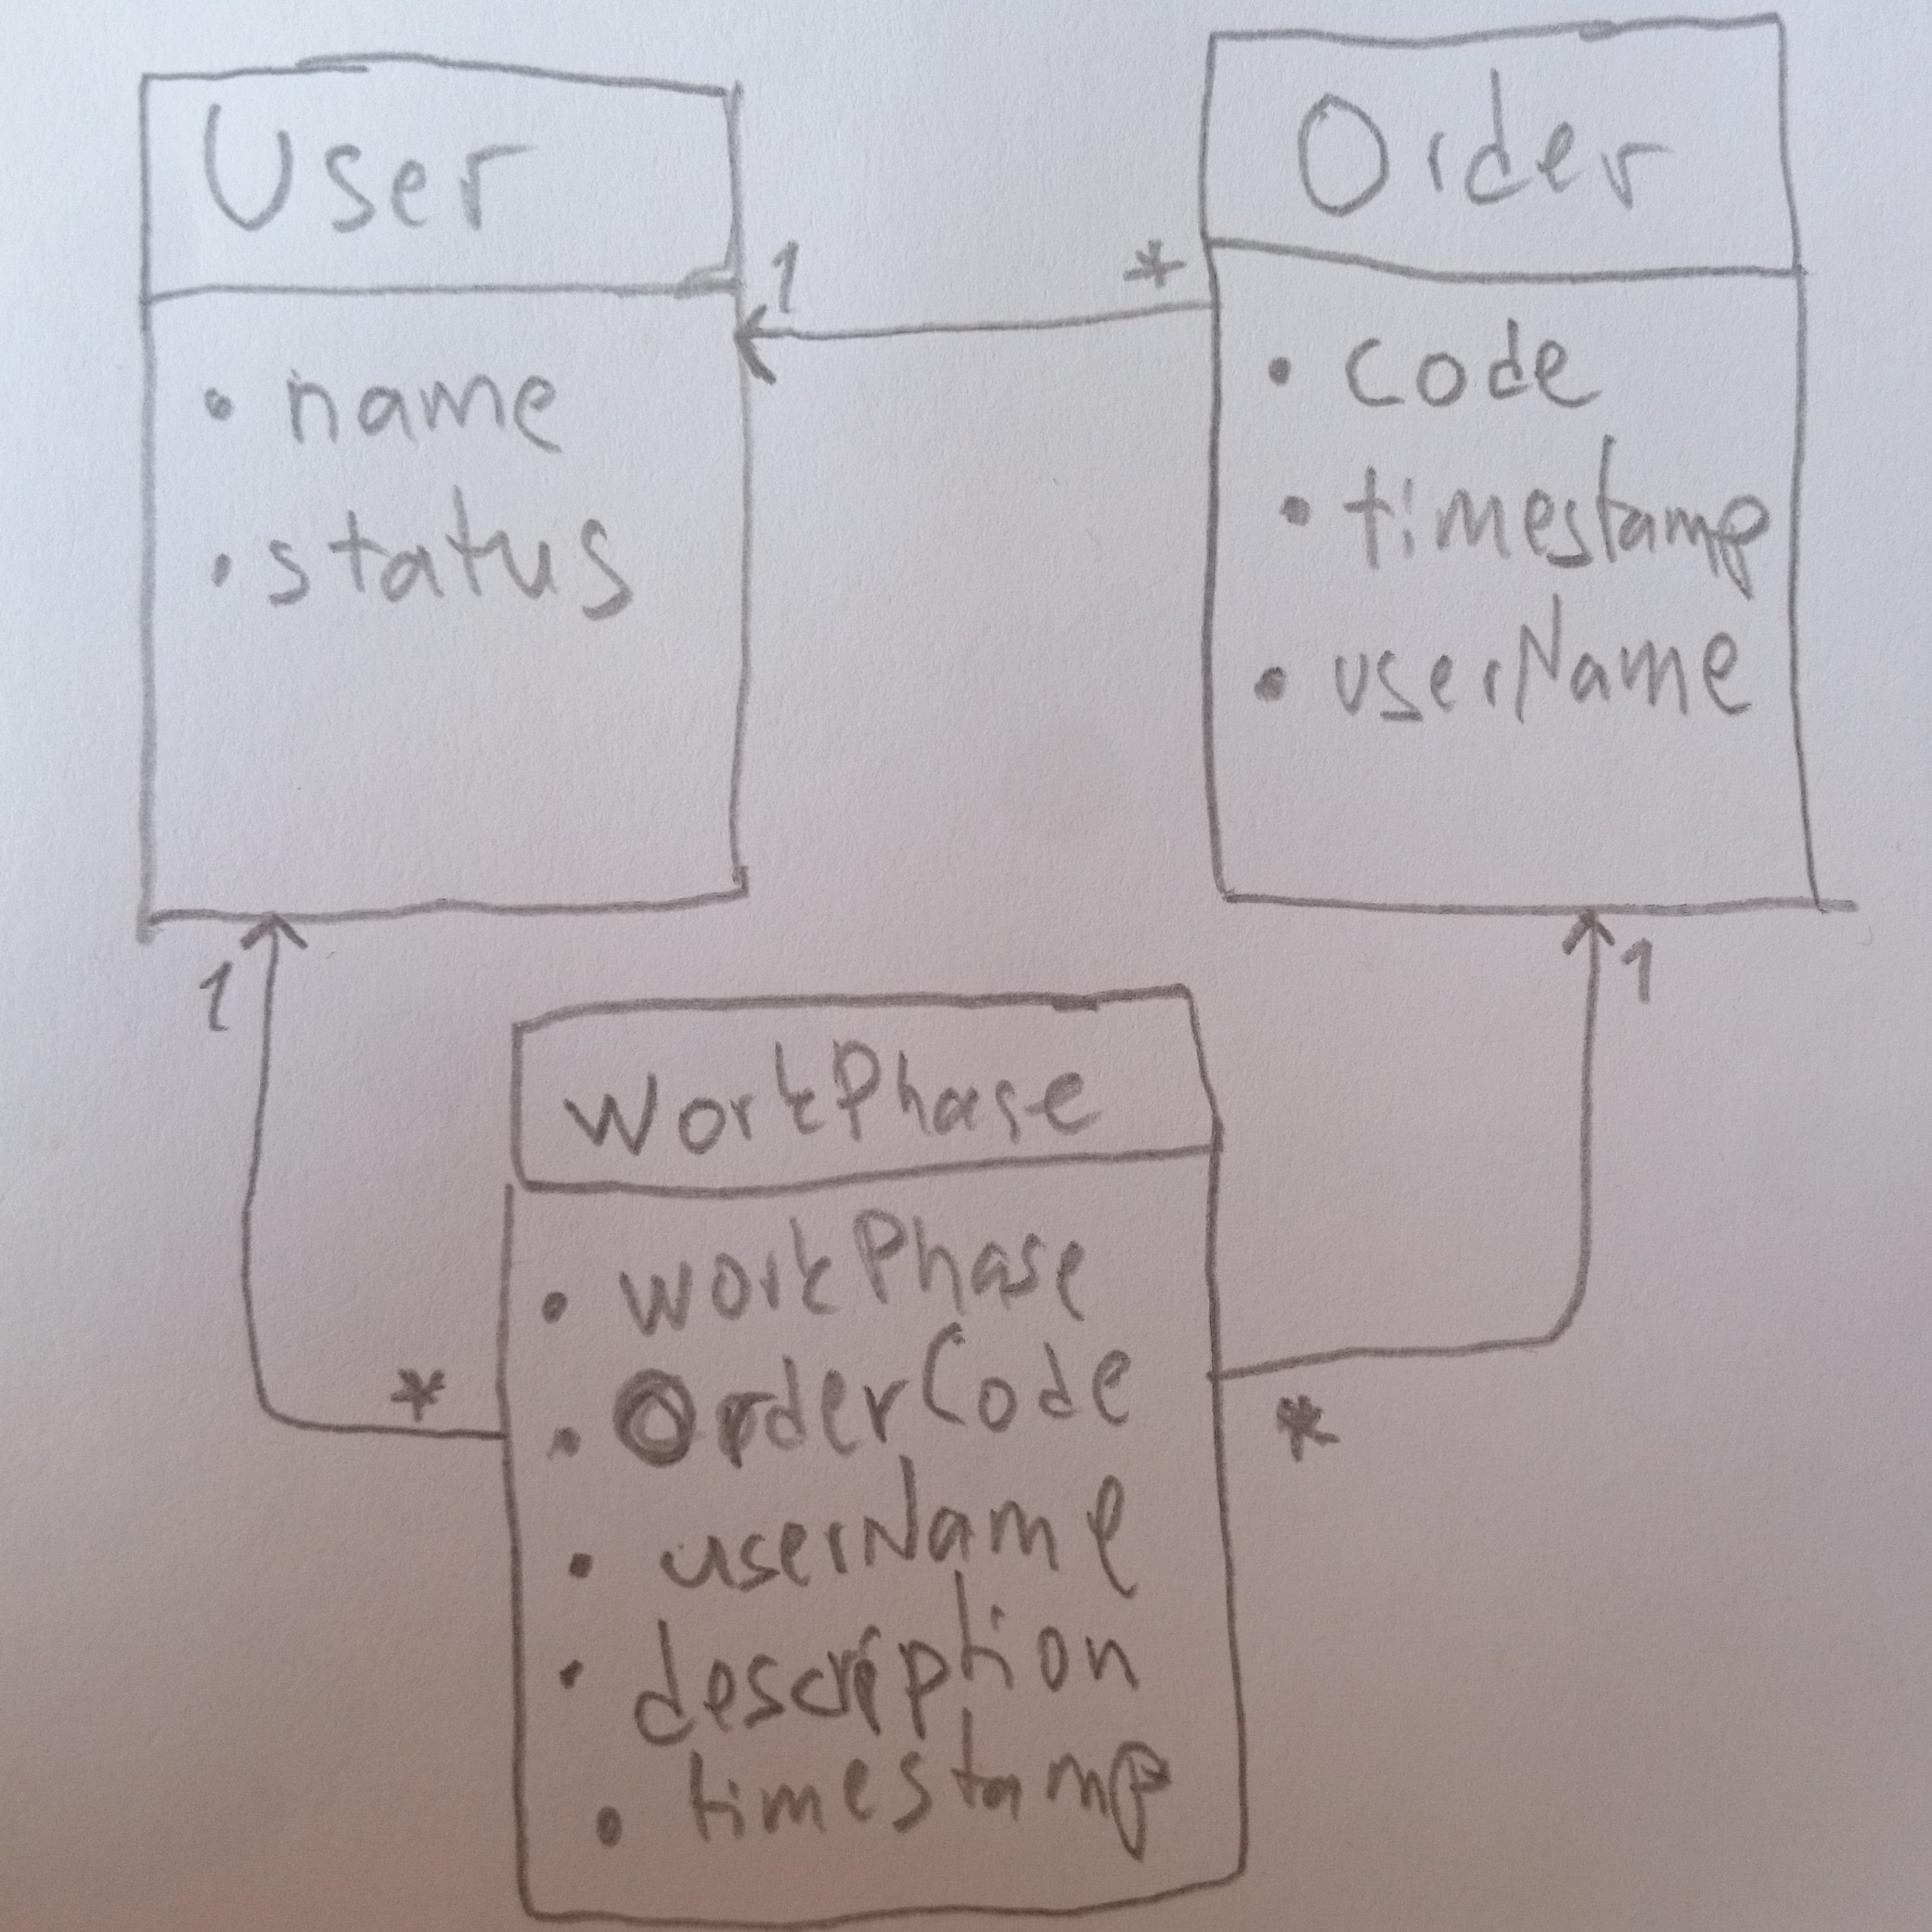 User
• name
• status
1
*
Order
• code
• timestamp
• userName
1
*
WorkPhase
• workPhase
• OrderCode
• userName
• description
• timestamp
1
*